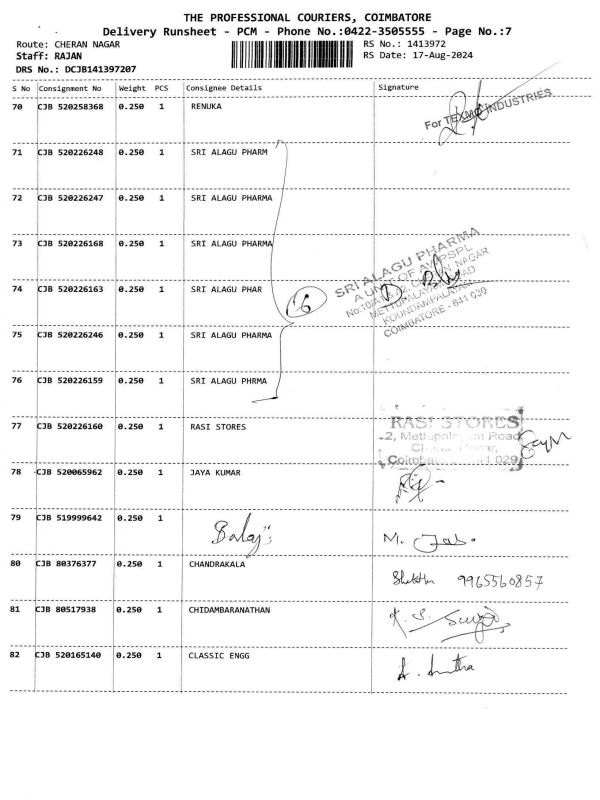 THE PROFESSIONAL COURIERS, COIMBATORE
Delivery Runsheet - PCM - Phone No.:0422-3505555 - Page No.:7
Route: CHERAN NAGAR RS No.: 1413972
Staff: RAJAN RS Date: 17-Aug-2024
DRS No.: DCJB141397207
S No Consignment No Weight PCS Consignee Details Signature
70 CJB 520258368 0.250 1 RENUKA
For TEXMO INDUSTRIES
71 CJB 520226248 0.250 1 SRI ALAGU PHARM
72 CJB 520226247 0.250 1 SRI ALAGU PHARMA
73 CJB 520226168 0.250 1 SRI ALAGU PHARMA
SRI ALAGU PHARMA
A UNIT OF
NAGAR
METTUPALAYAM ROAD
KOUNDAMPALAYAM
COIMBATORE - 641 030
74 CJB 520226163 0.250 1 SRI ALAGU PHAR
6
75 CJB 520226246 0.250 1 SRI ALAGU PHARMA
76 CJB 520226159 0.250 1 SRI ALAGU PHRMA
77 CJB 520226160 0.250 1 RASI STORES
RASI STORES
2, Mettupalayam Road
78 CJB 520065962 0.250 1 JAYA KUMAR
79 CJB 519999642 0.250 1
Balaji
M.
80 CJB 80376377 0.250 1 CHANDRAKALA
9965560857
81 CJB 80517938 0.250 1 CHIDAMBARANATHAN
K. S. Surya
82 CJB 520165140 0.250 1 CLASSIC ENGG